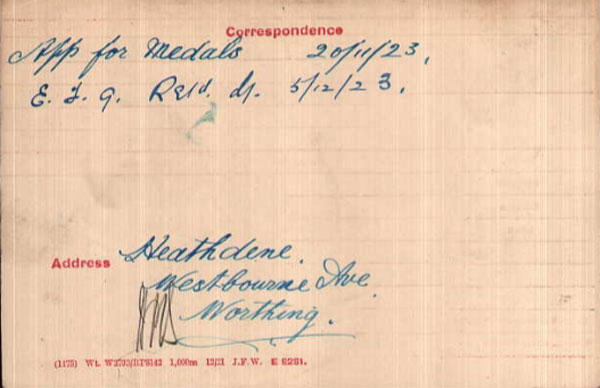 Correspondence
App for Medals 20/11/23.
E. F. 9. Retd. 5/12/23.
Address Heathdene.
Westbourne Ave
Worthing.
1,000m 12/21 J.F.W. E 6281.